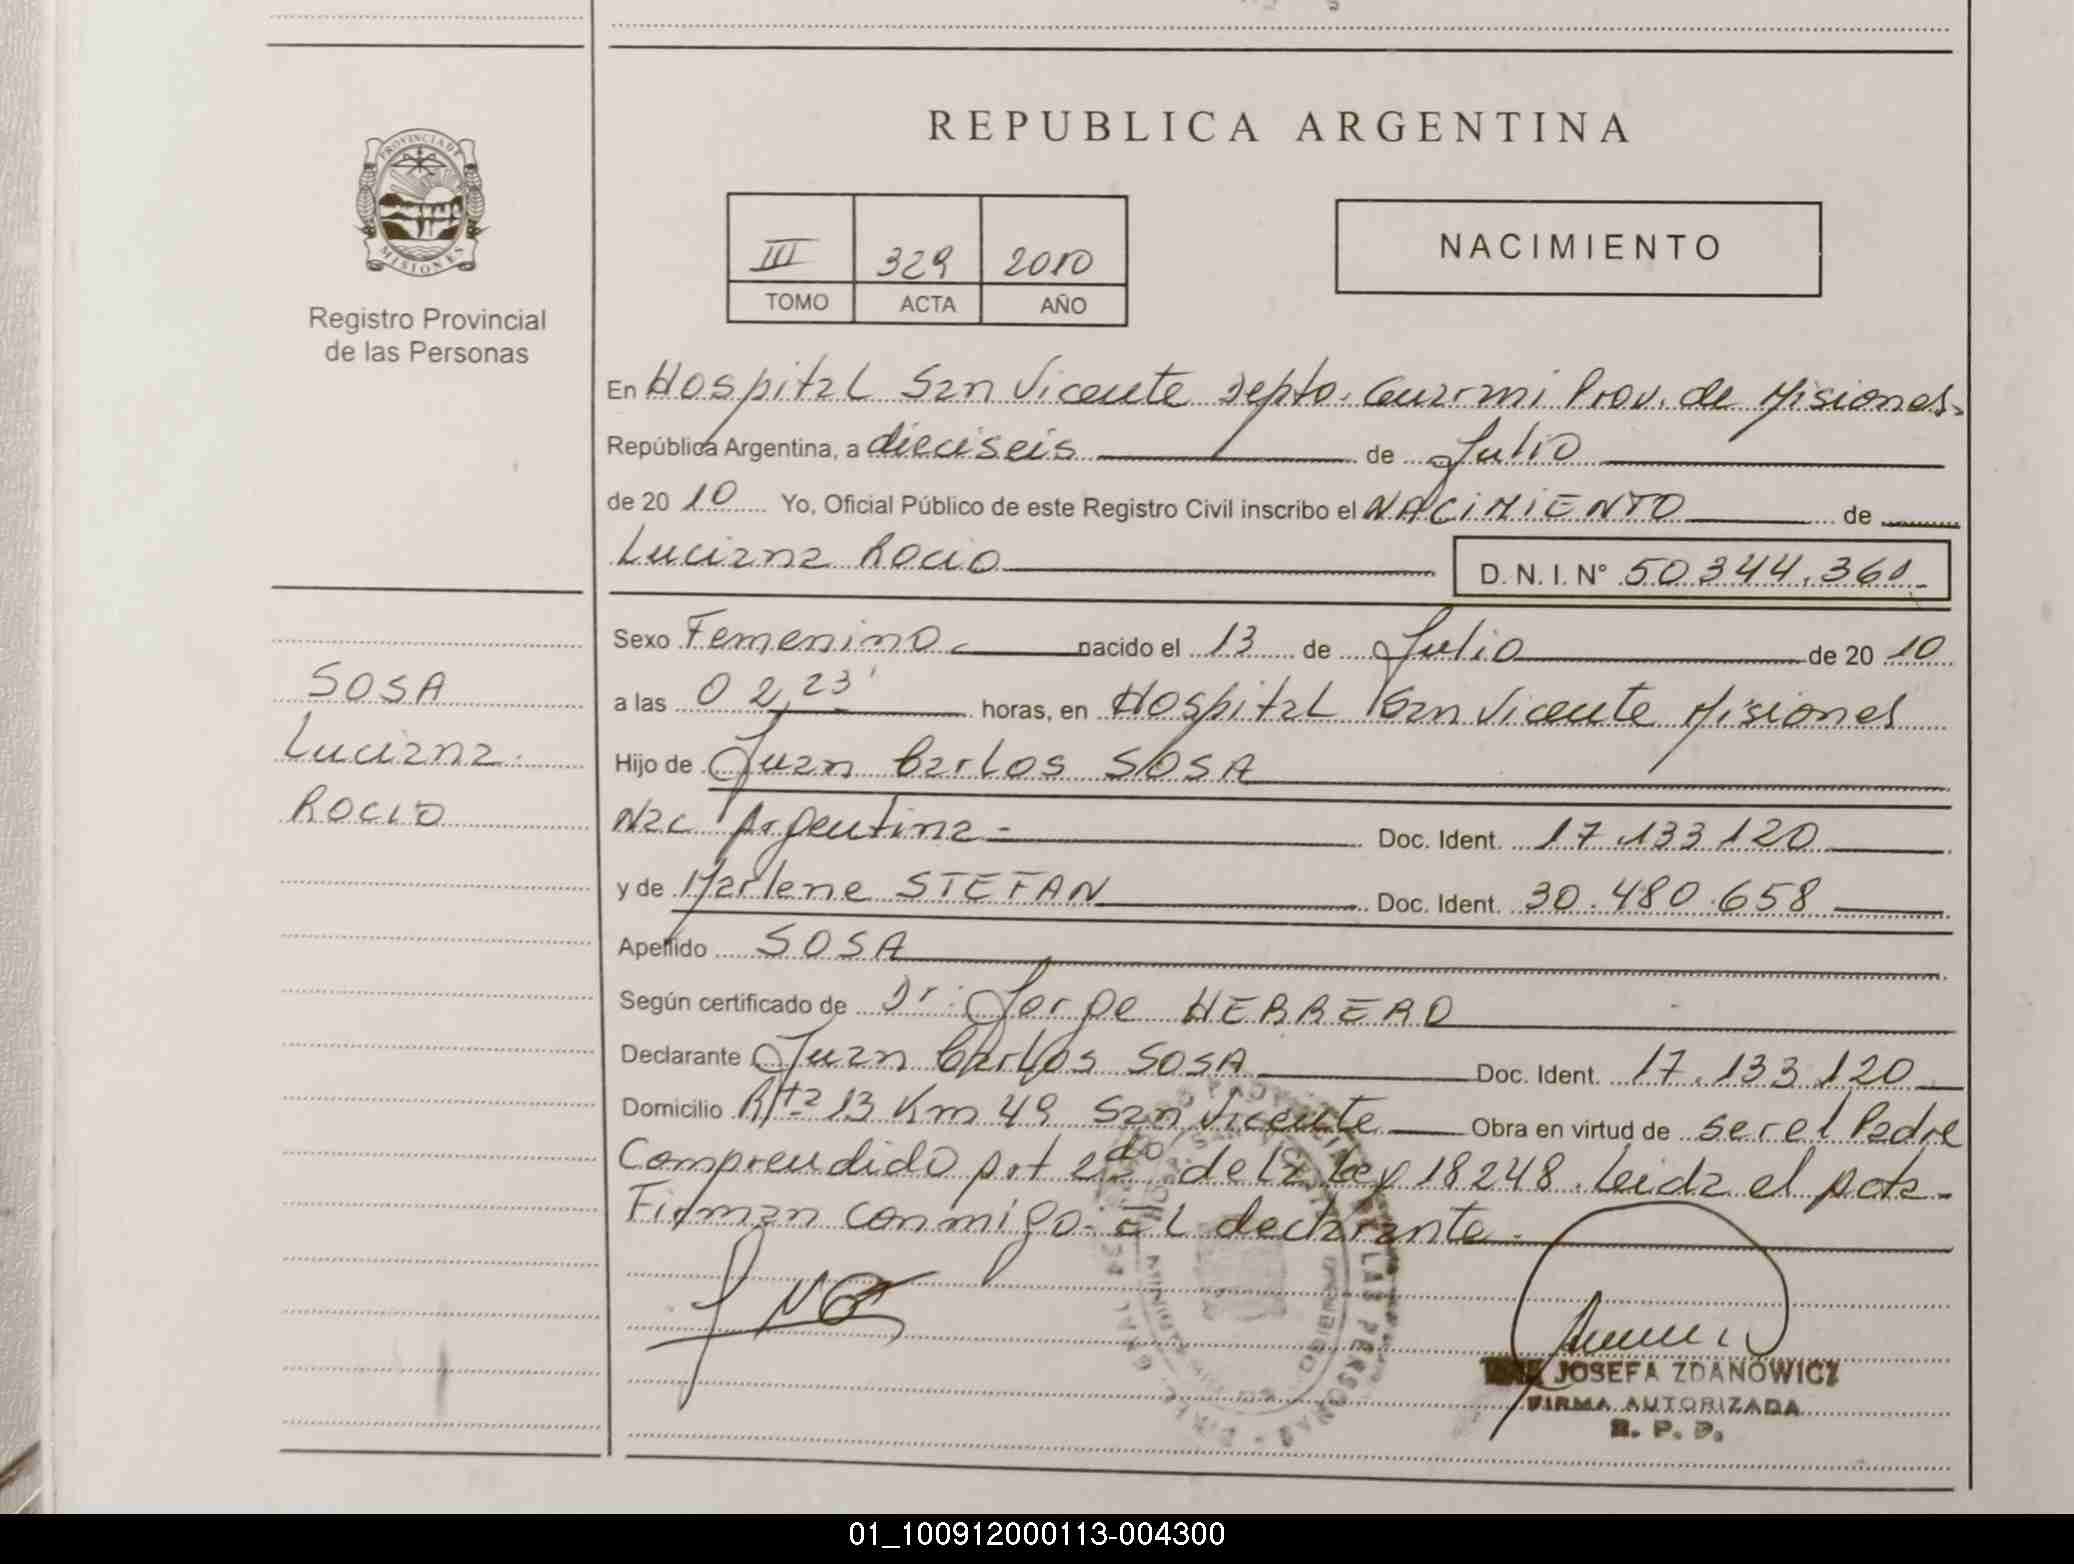 REPUBLICA ARGENTINA
PROVINCIA DE
MISIONES
Registro Provincial
de las Personas
III 329 2010
TOMO ACTA AÑO
NACIMIENTO
En Hospital San Vicente Depto. Guarani Prov. de Misiones
República Argentina, a dieciseis de Julio
de 20 10 Yo, Oficial Público de este Registro Civil inscribo el NACIMIENTO de
Luciana Rocio D. N. I. Nº 50344.361
Sexo Femenino nacido el 13 de Julio de 20 10
a las 02,23' horas, en Hospital San Vicente Misiones
Hijo de Juan Carlos SOSA
Nac Argentina - Doc. Ident. 17.133.120
y de Marlene STEFAN Doc. Ident. 30.480.658
Apellido SOSA
Según certificado de Dr. Jorge HERRERO
Declarante Juan Carlos SOSA Doc. Ident. 17.133.120
Domicilio Rta 13 Km 49 San Vicente Obra en virtud de ser el Padre
Comprendido Art 2do de la Ley 18248. Leida el Acta -
Firman conmigo. El declarante.
SOSA
Luciana
ROCIO
LAS PERSONAS
JOSEFA ZDANOWICZ
FIRMA AUTORIZADA
R. P. P.
01_100912000113-004300